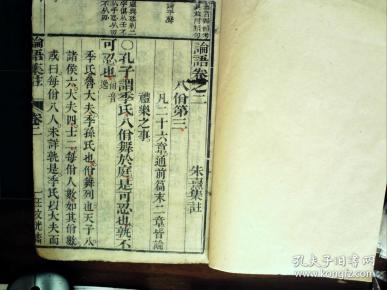 論語卷之二
朱熹集註
八佾第三
凡二十六章通前篇末二章皆論
禮樂之事
○孔子謂季氏八佾舞於庭是可忍也孰不
可忍也
季氏魯大夫季孫氏也佾舞列也天子八
諸侯六大夫四士二每佾人數如其佾數
或曰每佾八人未詳孰是季氏以大夫而
論語集註
卷二
孔夫子旧书网